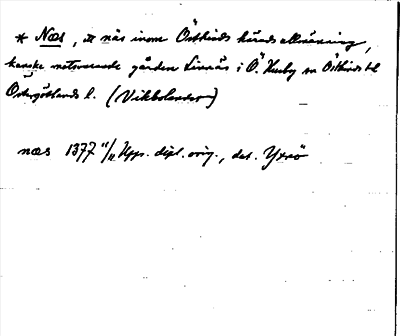 * Næs, ett näs inom Östkinds härads allmänning,
kanske motsvarande gården Linnäs i Ö. Husby sn Östkinds hd
Östergötlands l. (Vikbolandet)
næs 1377 11/11 Upps. dipl. orig., dat. Yxnö